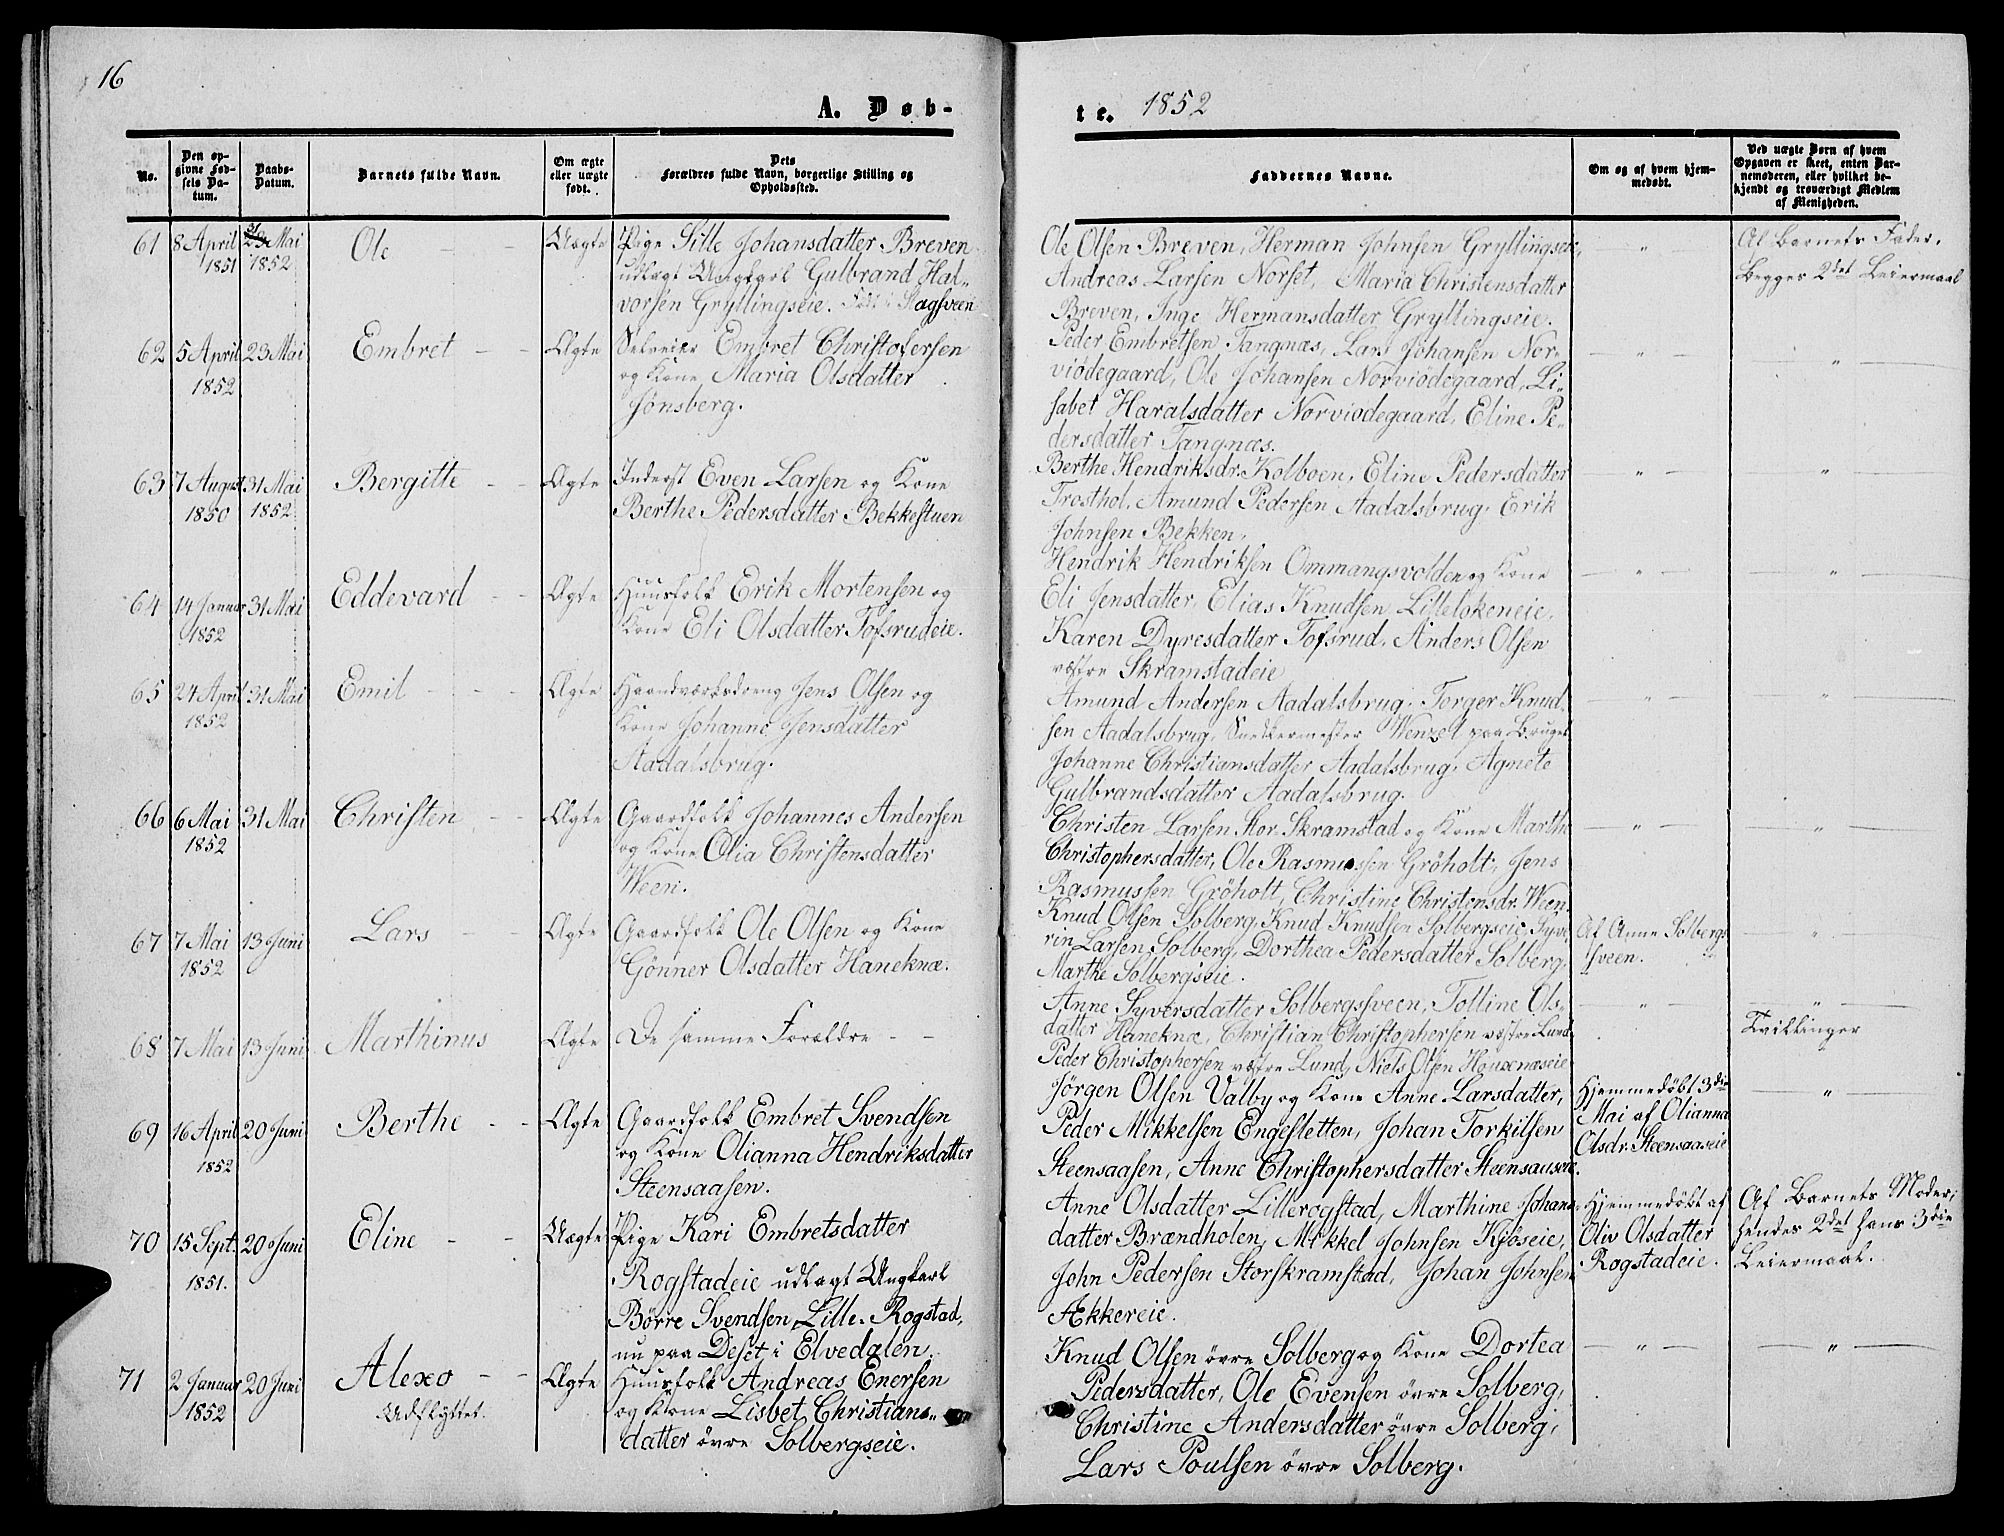 16
A. Døb-
te. 1852
No.
Den op-
givne Fød-
sels Da-
tum.
Daabs-
Datum.
Barnets fulde Navn.
Om ægte
eller uægte
født.
Dets
Forældres fulde Navn, borgerlige Stilling og
Opholdssted.
Faddernes Navne.
Om og af hvem hjem-
medøbt.
Ved uægte Børn af hvem
Opgaven er skeet, enten Bar-
nemoderen, eller hvilket be-
kjendt og troværdigt Medlem
af Menigheden.
61 8 April Mai Ole Uægte Pige Sille Johansdatter Breven
1851 1852 udlagt Ungkarl Gulbrand Hal-
vorsen Gryllingseie.
Ole Olsen Breven, Herman Johnsen Gryllingseie, " Af Barnets Fader.
Andreas Larsen Norset, Maria Christensdatter Begges 2det Leiermaal
Breven, Inge Hermansdatter Gryllingseie.
62 5 April 23 Mai Embret Ægte Selveier Embret Christofersen
1852 og Kone Maria Olsdatter
Sönsberg.
Peder Embretsen Tangnæs, Lars Johansen Nor-
viödegaard, Ole Johansen Norviödegaard, Li-
sabet Haralsdatter Norviodegaard, Eline Pe-
dersdatter Tangnæs.
63 7 August 31 Mai Bergitte Ægte Inderst Even Larsen og Kone
1850 1852 Berthe Pedersdatter Bekkestuen
Berthe Hendriksdr. Kolboen, Eline Pedersdatter
Trosthol, Amund Pedersen Aadalsbrug, Erik
Johnsen Bekken.
64 14 Januar 31 Mai Eddevard Ægte Huusfolk Erik Mortensen og
1852 Kone Eli Olsdatter Tofsrudeie.
Hendrik Hendriksen Ommangsvolden og Kone
Eli Jensdatter, Elias Knudsen Lillelökeneie.
Karen Dyresdatter Tofsrud, Anders Olsen
västre Skramstadeie
65 24 April 31 Mai Emil Ægte Haandværksdreng Jens Olsen og
1852 Kone Johanne Jensdatter
Aadalsbrug.
Amund Andersen Aadalsbrug, Torger Knud-
sen Aadalsbrug, Snedkermester Wenzel paa Bruget
Johanne Christiansdatter Aadalsbrug, Agnete
Gulbrandsdatter Aadalsbrug.
66 6 Mai 31 Mai Christen Ægte Gaardfolk Johannes Andersen
1852 og Kone Olia Christensdatter
Ween.
Christen Larsen Stor-Skramstad og Kone Marthe
Christophersdatter, Ole Rasmussen Gröholt, Jens
Rasmussen Gröholt, Christine Christensdr. Ween.
67 7 Mai 13 Juni Lars Ægte Gaardfolk Ole Olsen og Kone
1852 Gönner Olsdatter Haneknæ.
Knud Olsen Solberg, Knud Knudsen Solbergseie, Syve- Af Anne Solbergs-
rin Larsen Solberg, Dorthea Pedersdatter Solberg, sveen.
Marthe Solbergseie.
68 7 Mai 13 Juni Marthinus Ægte De samme Forældre
Anne Syversdatter Solbergssveen, Tolline Ols-
datter Haneknæ, Christian Christophersen västre Lund Tvillinger
Peder Christophersen västre Lund, Niels Olsen
69 16 April 20 Juni Berthe Ægte Gaardfolk Embret Svendsen
1852 og Kone Olianna Hendriksdatter
Steensaasen.
Jörgen Olsen Valby og Kone Anne Larsdatter, Hjemmedöbt 3die
Peder Mikkelsen Engesletten, Johan Torkilsen Mai af Olianna
Steensaasen, Anne Christophersdatter Steensaaseie. Olsdr. Steensaaseie
70 15 Sept. 20 Juni Eline Uægte Pige Kari Embretsdatter
1851. Rogstadeie udlagt Ungkarl
Börre Svendsen Lille-Rogstad,
nu paa Deset i Elvedalen.
Anne Olsdatter Lillerogstad, Marthine Johans- Hjemmedöbt af Af Barnets Moder,
datter Brændholen, Mikkel Johnsen Kjöseie, Oliv Olsdatter hendes 2det hans 3die
John Pedersen Storskramstad, Johan Johnsen Rogstadeie. Leiermaal.
Akkereie.
71 2 Januar 20 Juni Alexo Ægte Huusfolk Andreas Enersen
1852 Udflyttet. og Kone Lisbet Christians-
datter övre Solbergseie.
Knud Olsen övre Solberg og Kone Dortea
Pedersdatter, Ole Evensen övre Solberg,
Christine Andersdatter övre Solberg,
Lars Poulsen övre Solberg.